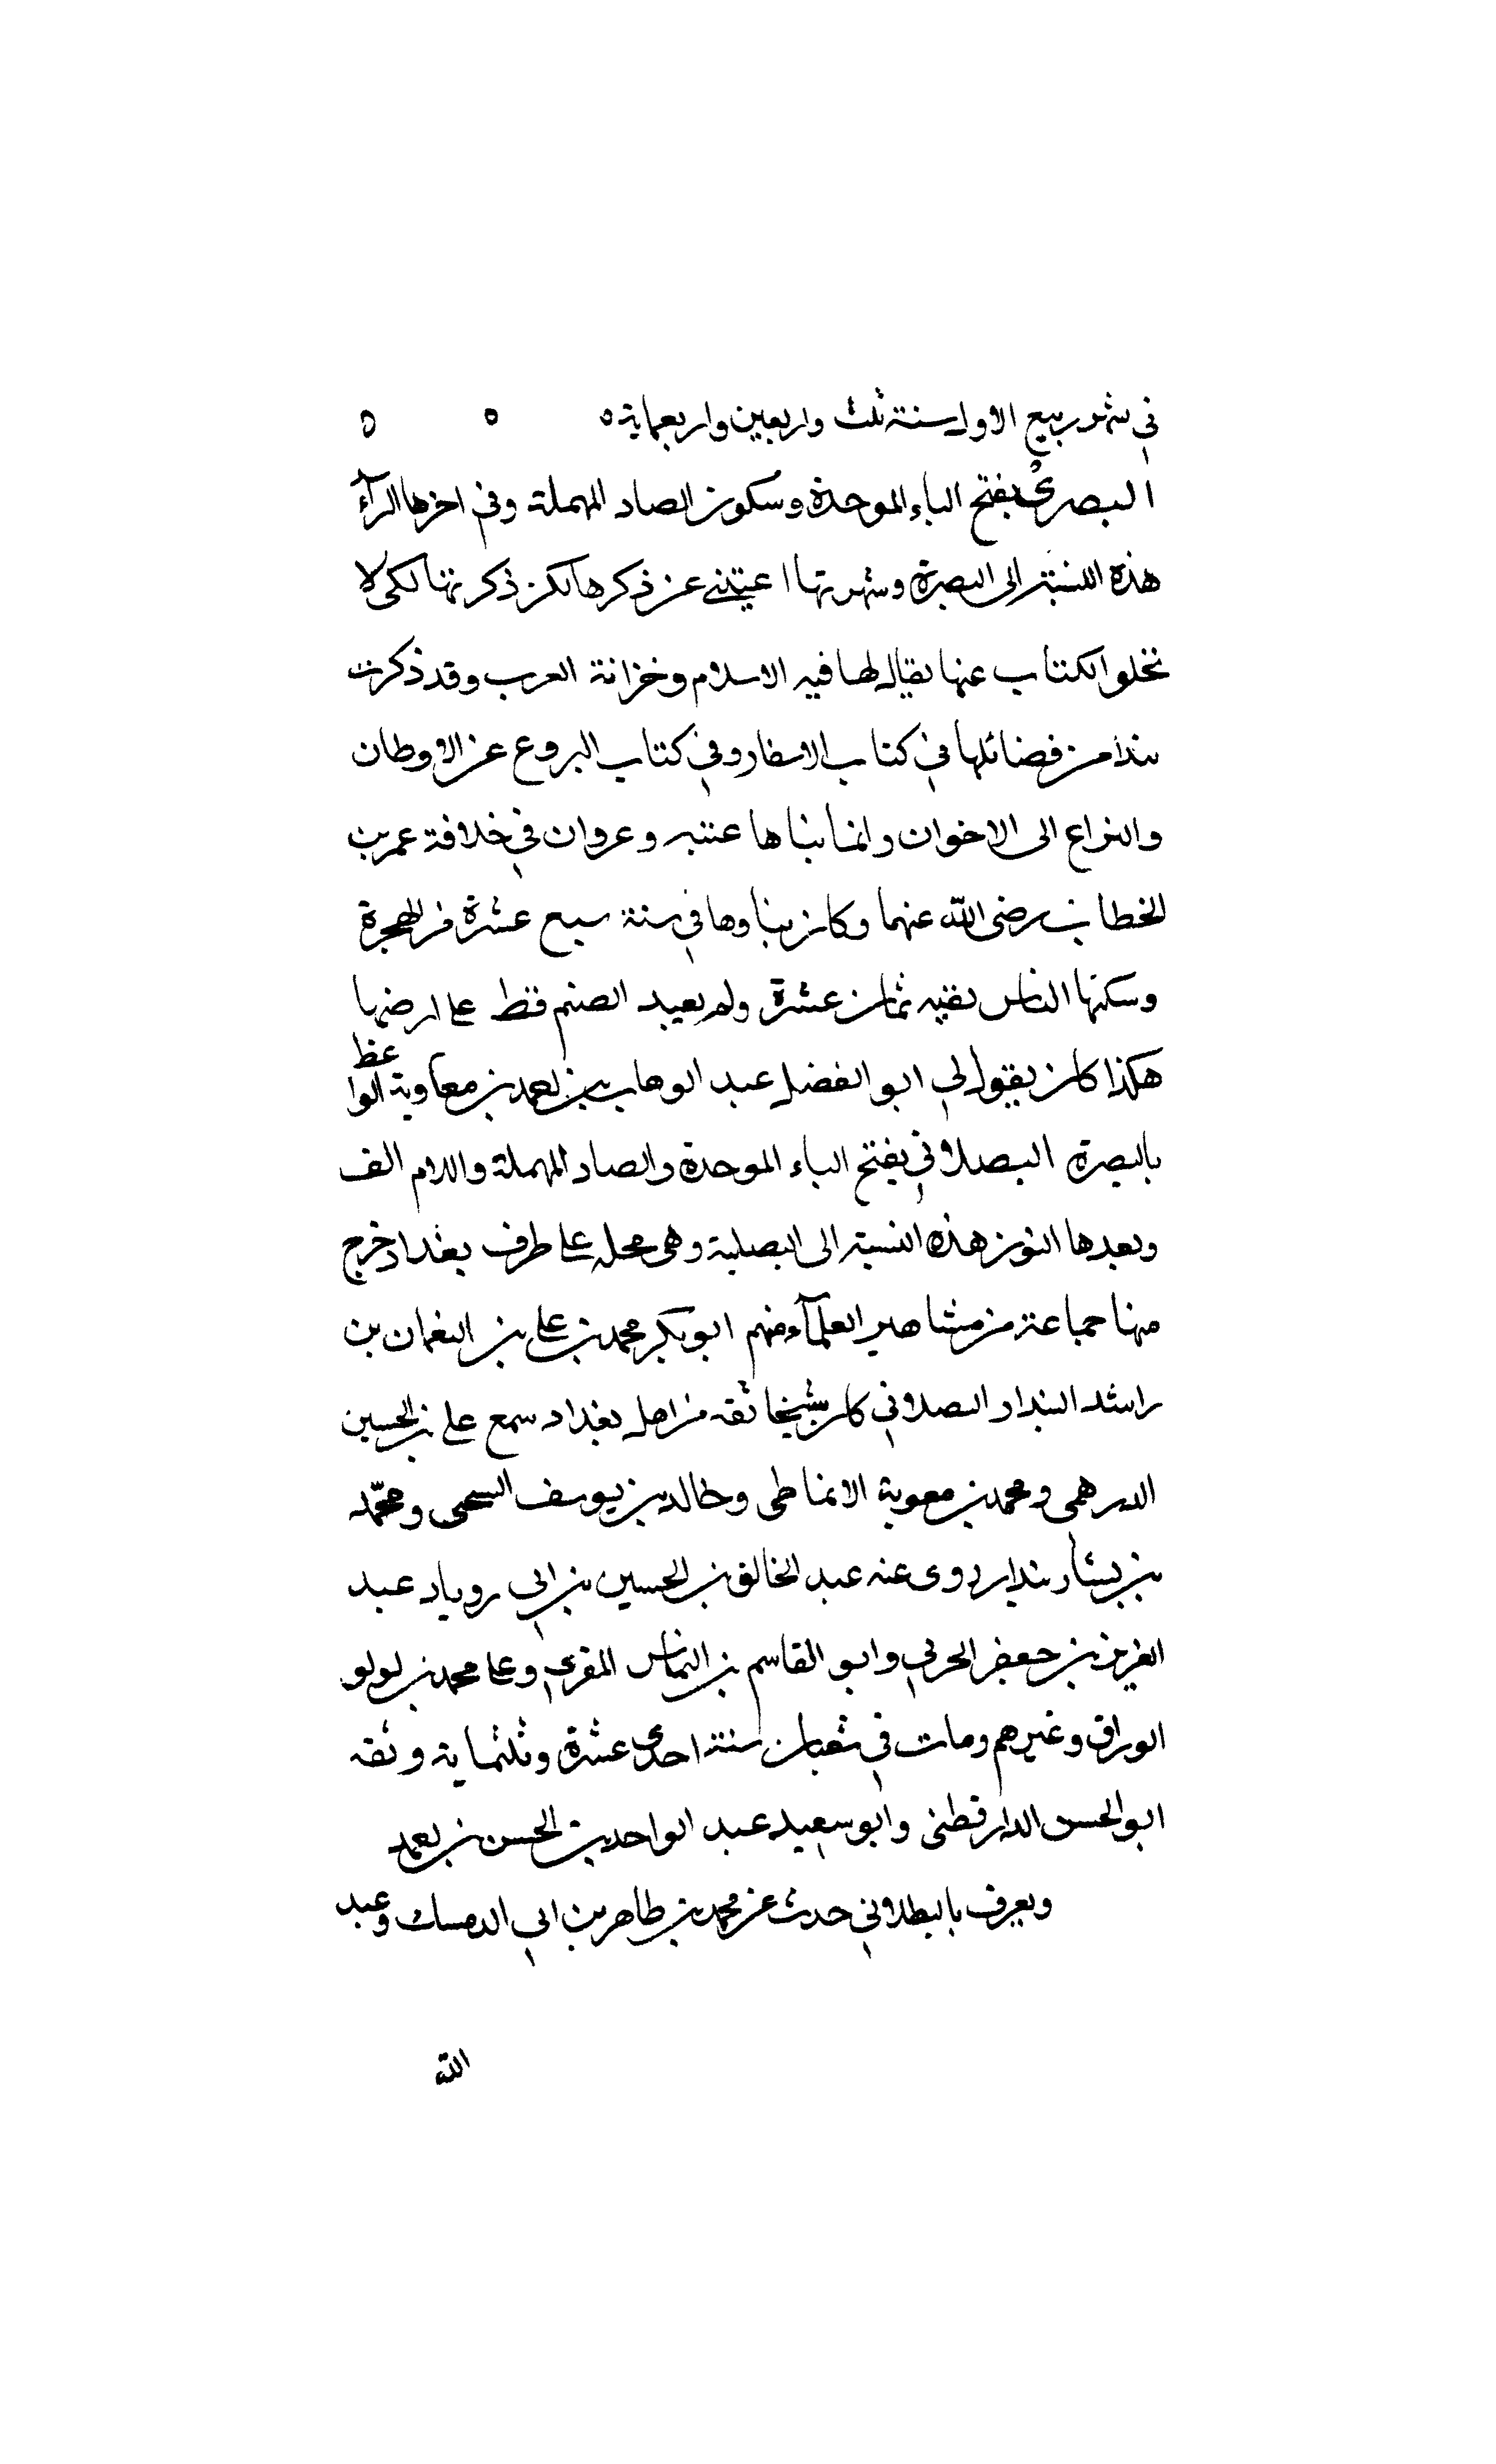 في شهر ربيع الاول سنة ثلث واربعين واربعماية ه ه ه
البصري بفتح الباء الموحدة وسكون الصاد المهملة وفي اخرها الرآء
هذه النسبة الى البصرة وشهرتها اغنتني عن ذكرها لكن ذكرتها لكى لا
تخلو الكتاب عنها يقال لها قبه الاسلام وخزانة العرب وقد ذكرت
نبذا من فضائلها في كتاب الاسفار وفي كتاب النزوع عن الاوطان
والنزاع الى الاخوان وانما بناها عتبه وغزوان في خلافة عمر بن
الخطاب رضى الله عنهما وكان بناوها في سنة سبع عشرة من الهجرة
وسكنها الناس بقيه ثمان عشرة ولم يعبد الصنم قط على ارضها
هكذا كان يقول لي ابو الفضل عبد الوهاب بن احمد بن معاوية الواعظ
بالبصرة البصلاني بفتح الباء الموحدة والصاد المهملة واللام الف
وبعدها النون هذه النسبة الى البصلية وهى محله على طرف بغداد خرج
منها جماعة من مشاهير العلمآء منهم ابو بكر محمد بن على بن النعمان بن
راشد البندار البصلاني كان شيخا ثقه من اهل بغداد سمع على بن الحسين
الدرهمى ومحمد بن معوية الانماطى وخالد بن يوسف السمتى ومحمد
بن بشار بندار روى عنه عبد الخالق بن الحسين بن ابي روبا وعبد
العزيز بن جعفر الحربي وابو القاسم بن النخاس المقرى وعلى محمد بن لولو
الوراق وغيرهم ومات في شعبان سنة احدى عشرة وثلثماية وثقه
ابو الحسن الدارقطنى وابو سعيد عبد الواحد بن الحسن بن احمد
ويعرف بالبصلاني حدث عن محمد بن طاهر بن ابي الدميك وعبد
الله